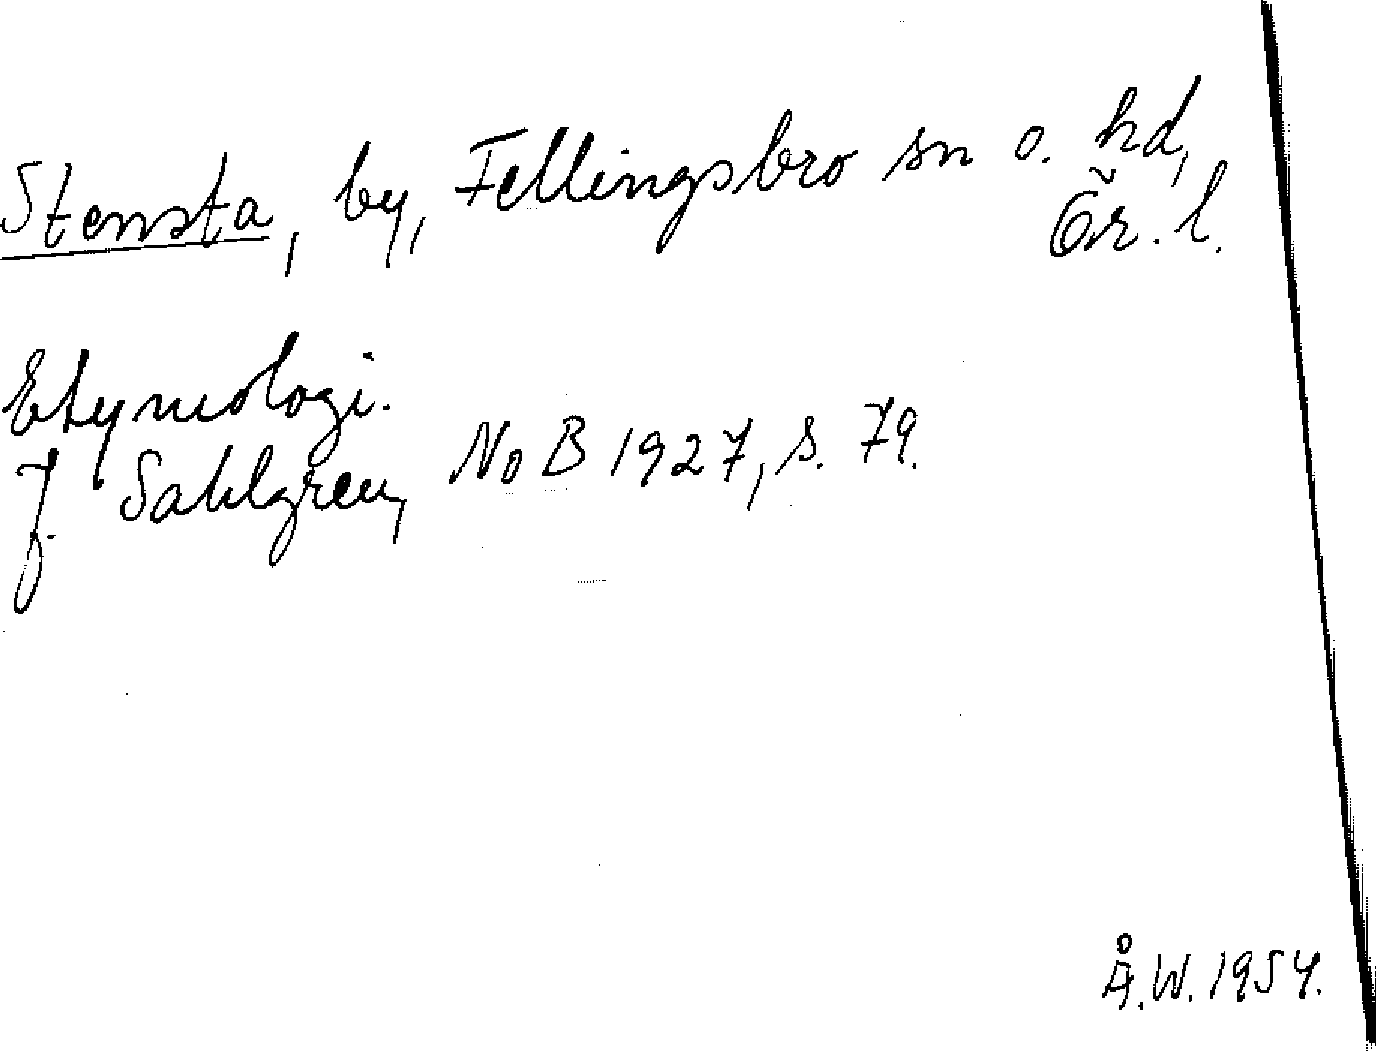 Stensta, by, Fellingsbro sn o. hd,
Ör. l.
Etymologi.
J. Sahlgren, NoB 1927, s. 79.
Å.W. 1954.